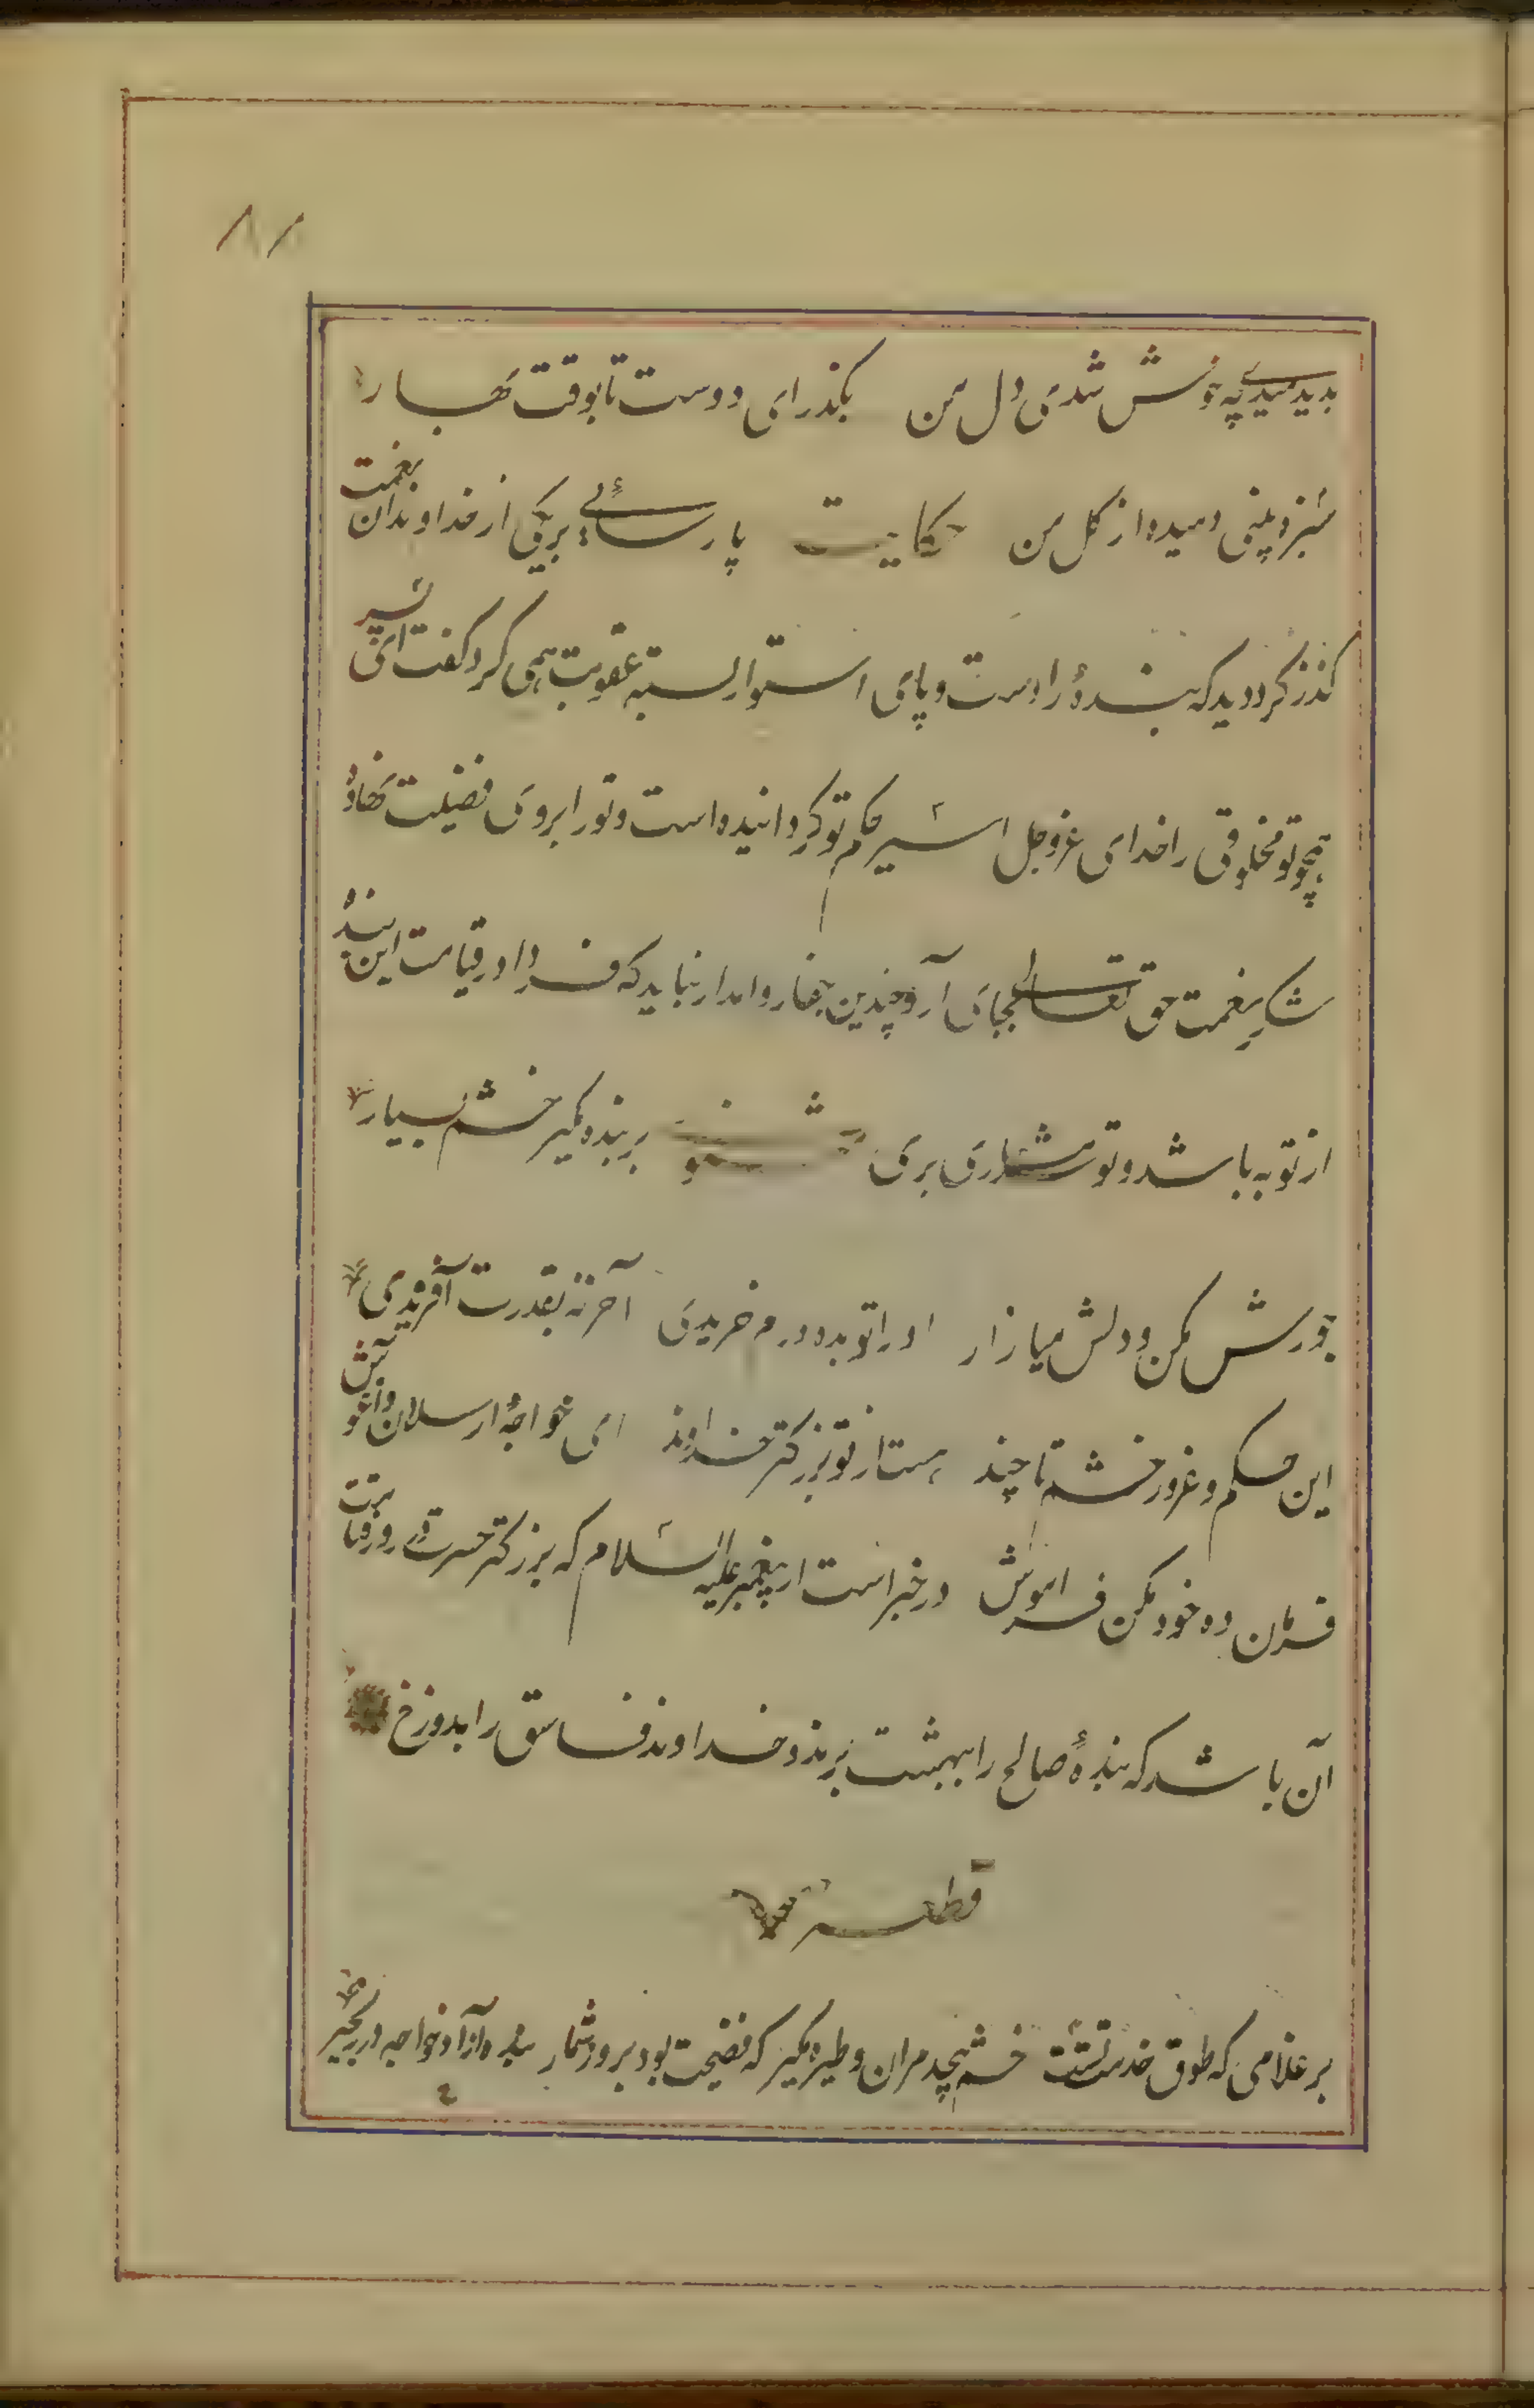 ۱۸۱
بدیدمیدی چه خوش شدی دل من بگذر ای دوست تا بوقت بهار
سبزه بینی دمیده از گل من حکایت پارسائی بر یکی از خداوندان نعمت
گذر کرد دید که بندهٔ را دست و پای استوار بسته عقوبت همی کرد گفت ای پسر
همچو تو مخلوقی را خدای عزوجل اسیر حکم تو گردانیده است و تو را بر وی فضیلت نهاده
شکر نعمت حق تعالی بجای آر و چندین جفا روا مدار نباید که فردا در قیامت این بنده
از تو به باشد و تو شرمساری بری مثنوی بر بنده مگیر خشم بسیار
جورش مکن و دلش میازار او را تو بده درم خریدی آخر نه بقدرت آفریدی
این حکم و غرور خشم تا چند هست از تو بزرگتر خداوند ای خواجهٔ ارسلان و آغوش
فرمان ده خود مکن فراموش در خبر است از پیغمبر علیه السلام که بزرگتر حسرت در روز قیامت
آن باشد که بندهٔ صالح را ببهشت برند و خداوند فاسق را بدوزخ
قطعه
بر غلامی که طوق خدمت تست خشم بیحد مران و طیره مگیر که فضیحت بود بروز شمار بنده آزاد و خواجه در زنجیر